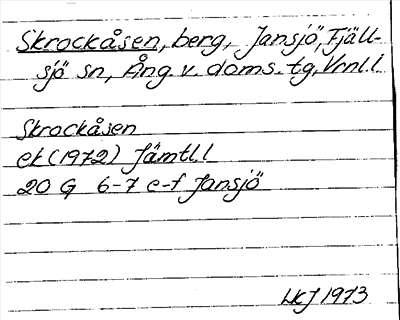 Skrockåsen, berg, Jansjö, Fjäll-
sjö sn, Ång. v. doms. tg, Vrnl. l.
Skrockåsen
ek (1972) Jämtl. l
20 G 6-7 e-f Jansjö
LKJ 1973